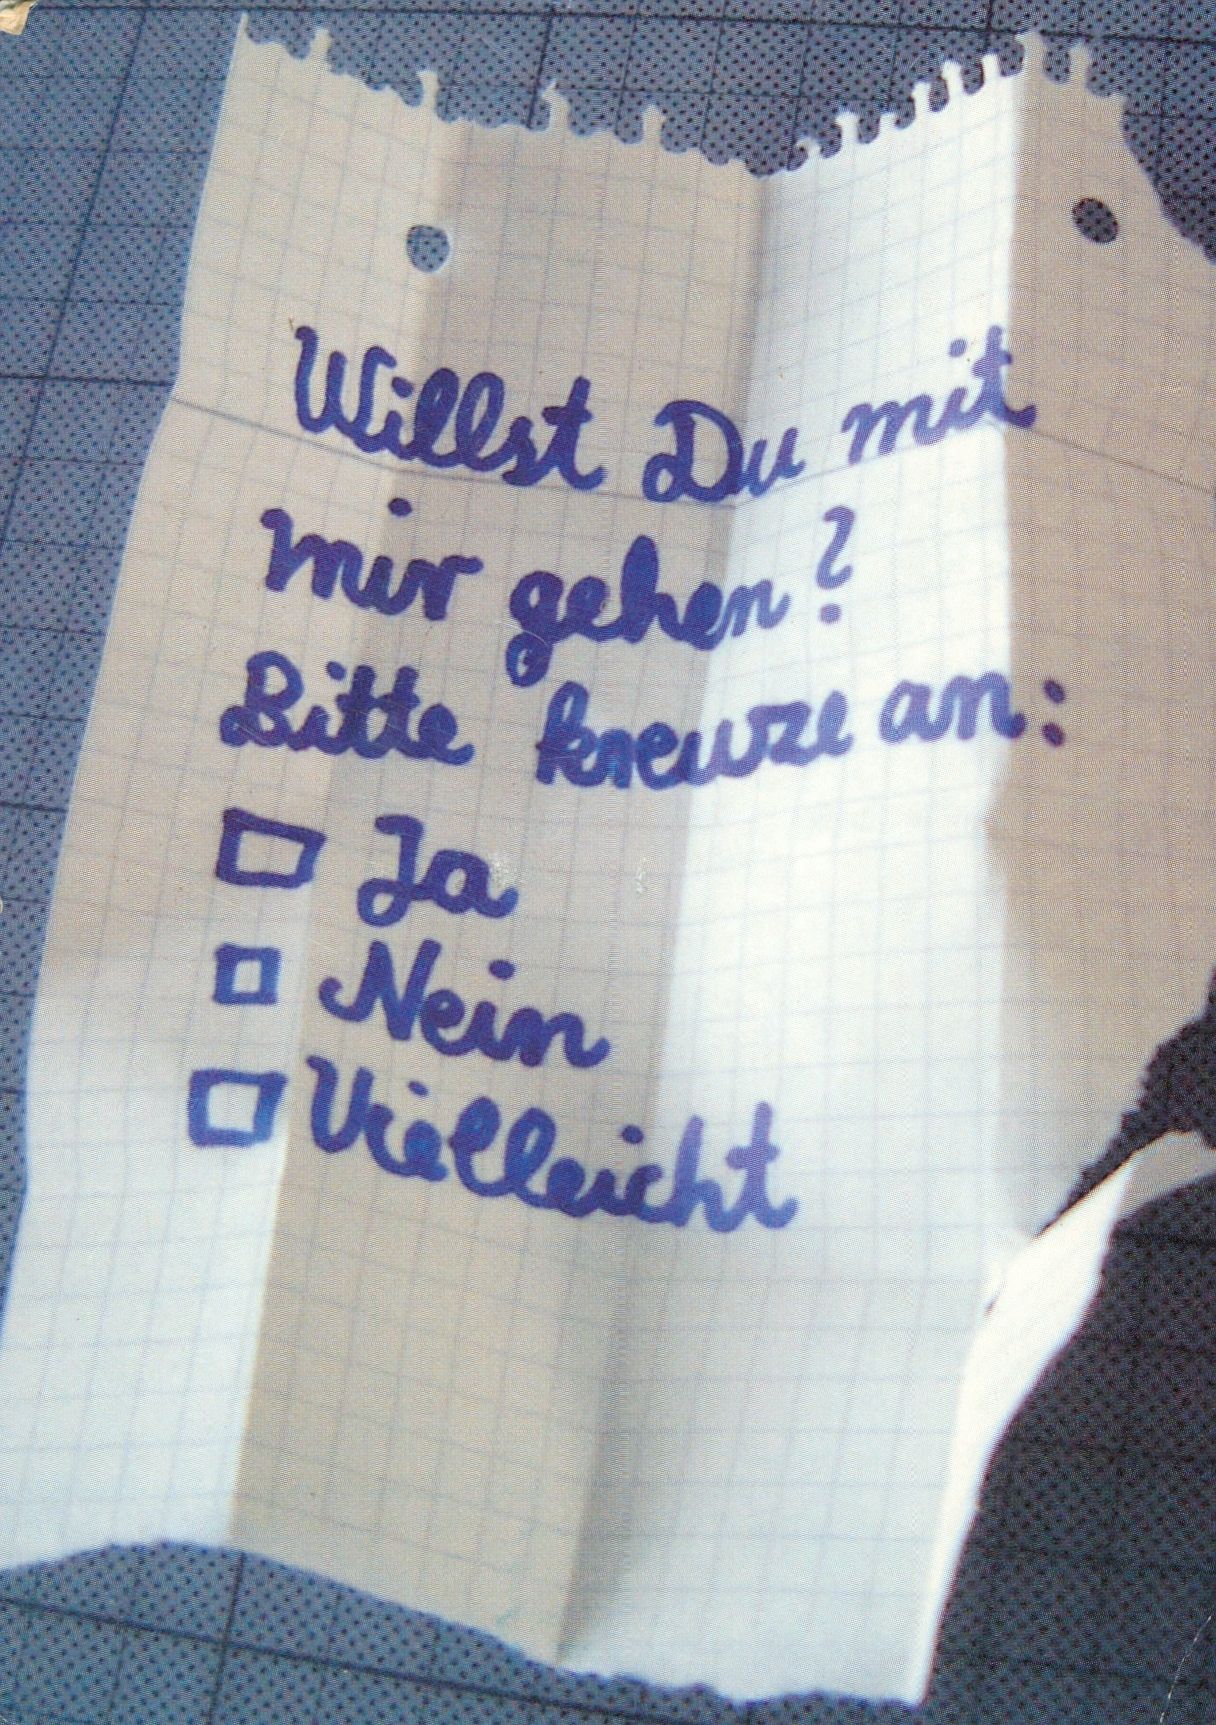 Willst Du mit
mir gehen?
Bitte kreuze an:
Ja
Nein
Vielleicht